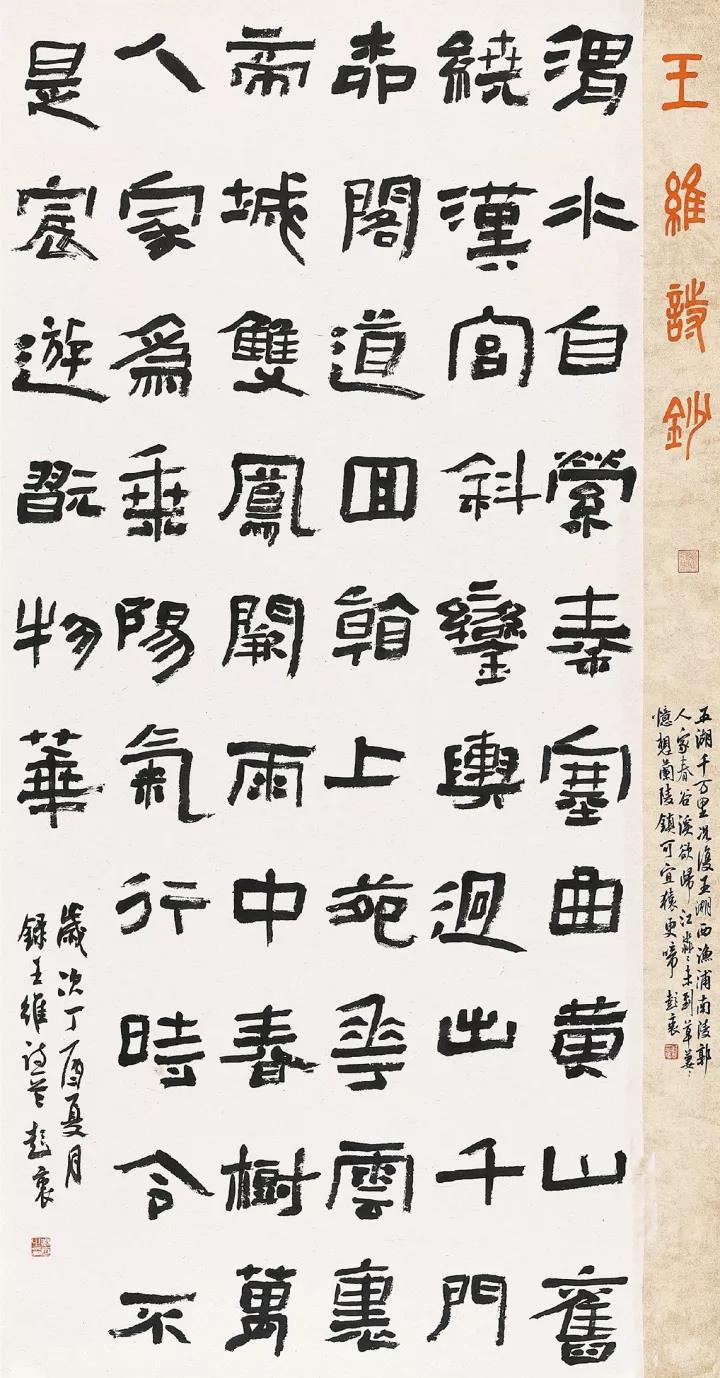 王維詩鈔
五湖千万里況復五湖西漁浦南陵郭
人家春谷溪欲歸江淼〻未到草萋〻
憶想蘭陵鎮可宜猿更啼
渭水自縈秦塞曲黄山舊
繞漢宮斜鑾輿迥出千門
桺閣道回看上苑花雲裏
帝城雙鳳闕雨中春樹萬
人家爲乘陽氣行時令不
是宸遊翫物華
歲次丁酉夏月
錄王維詩